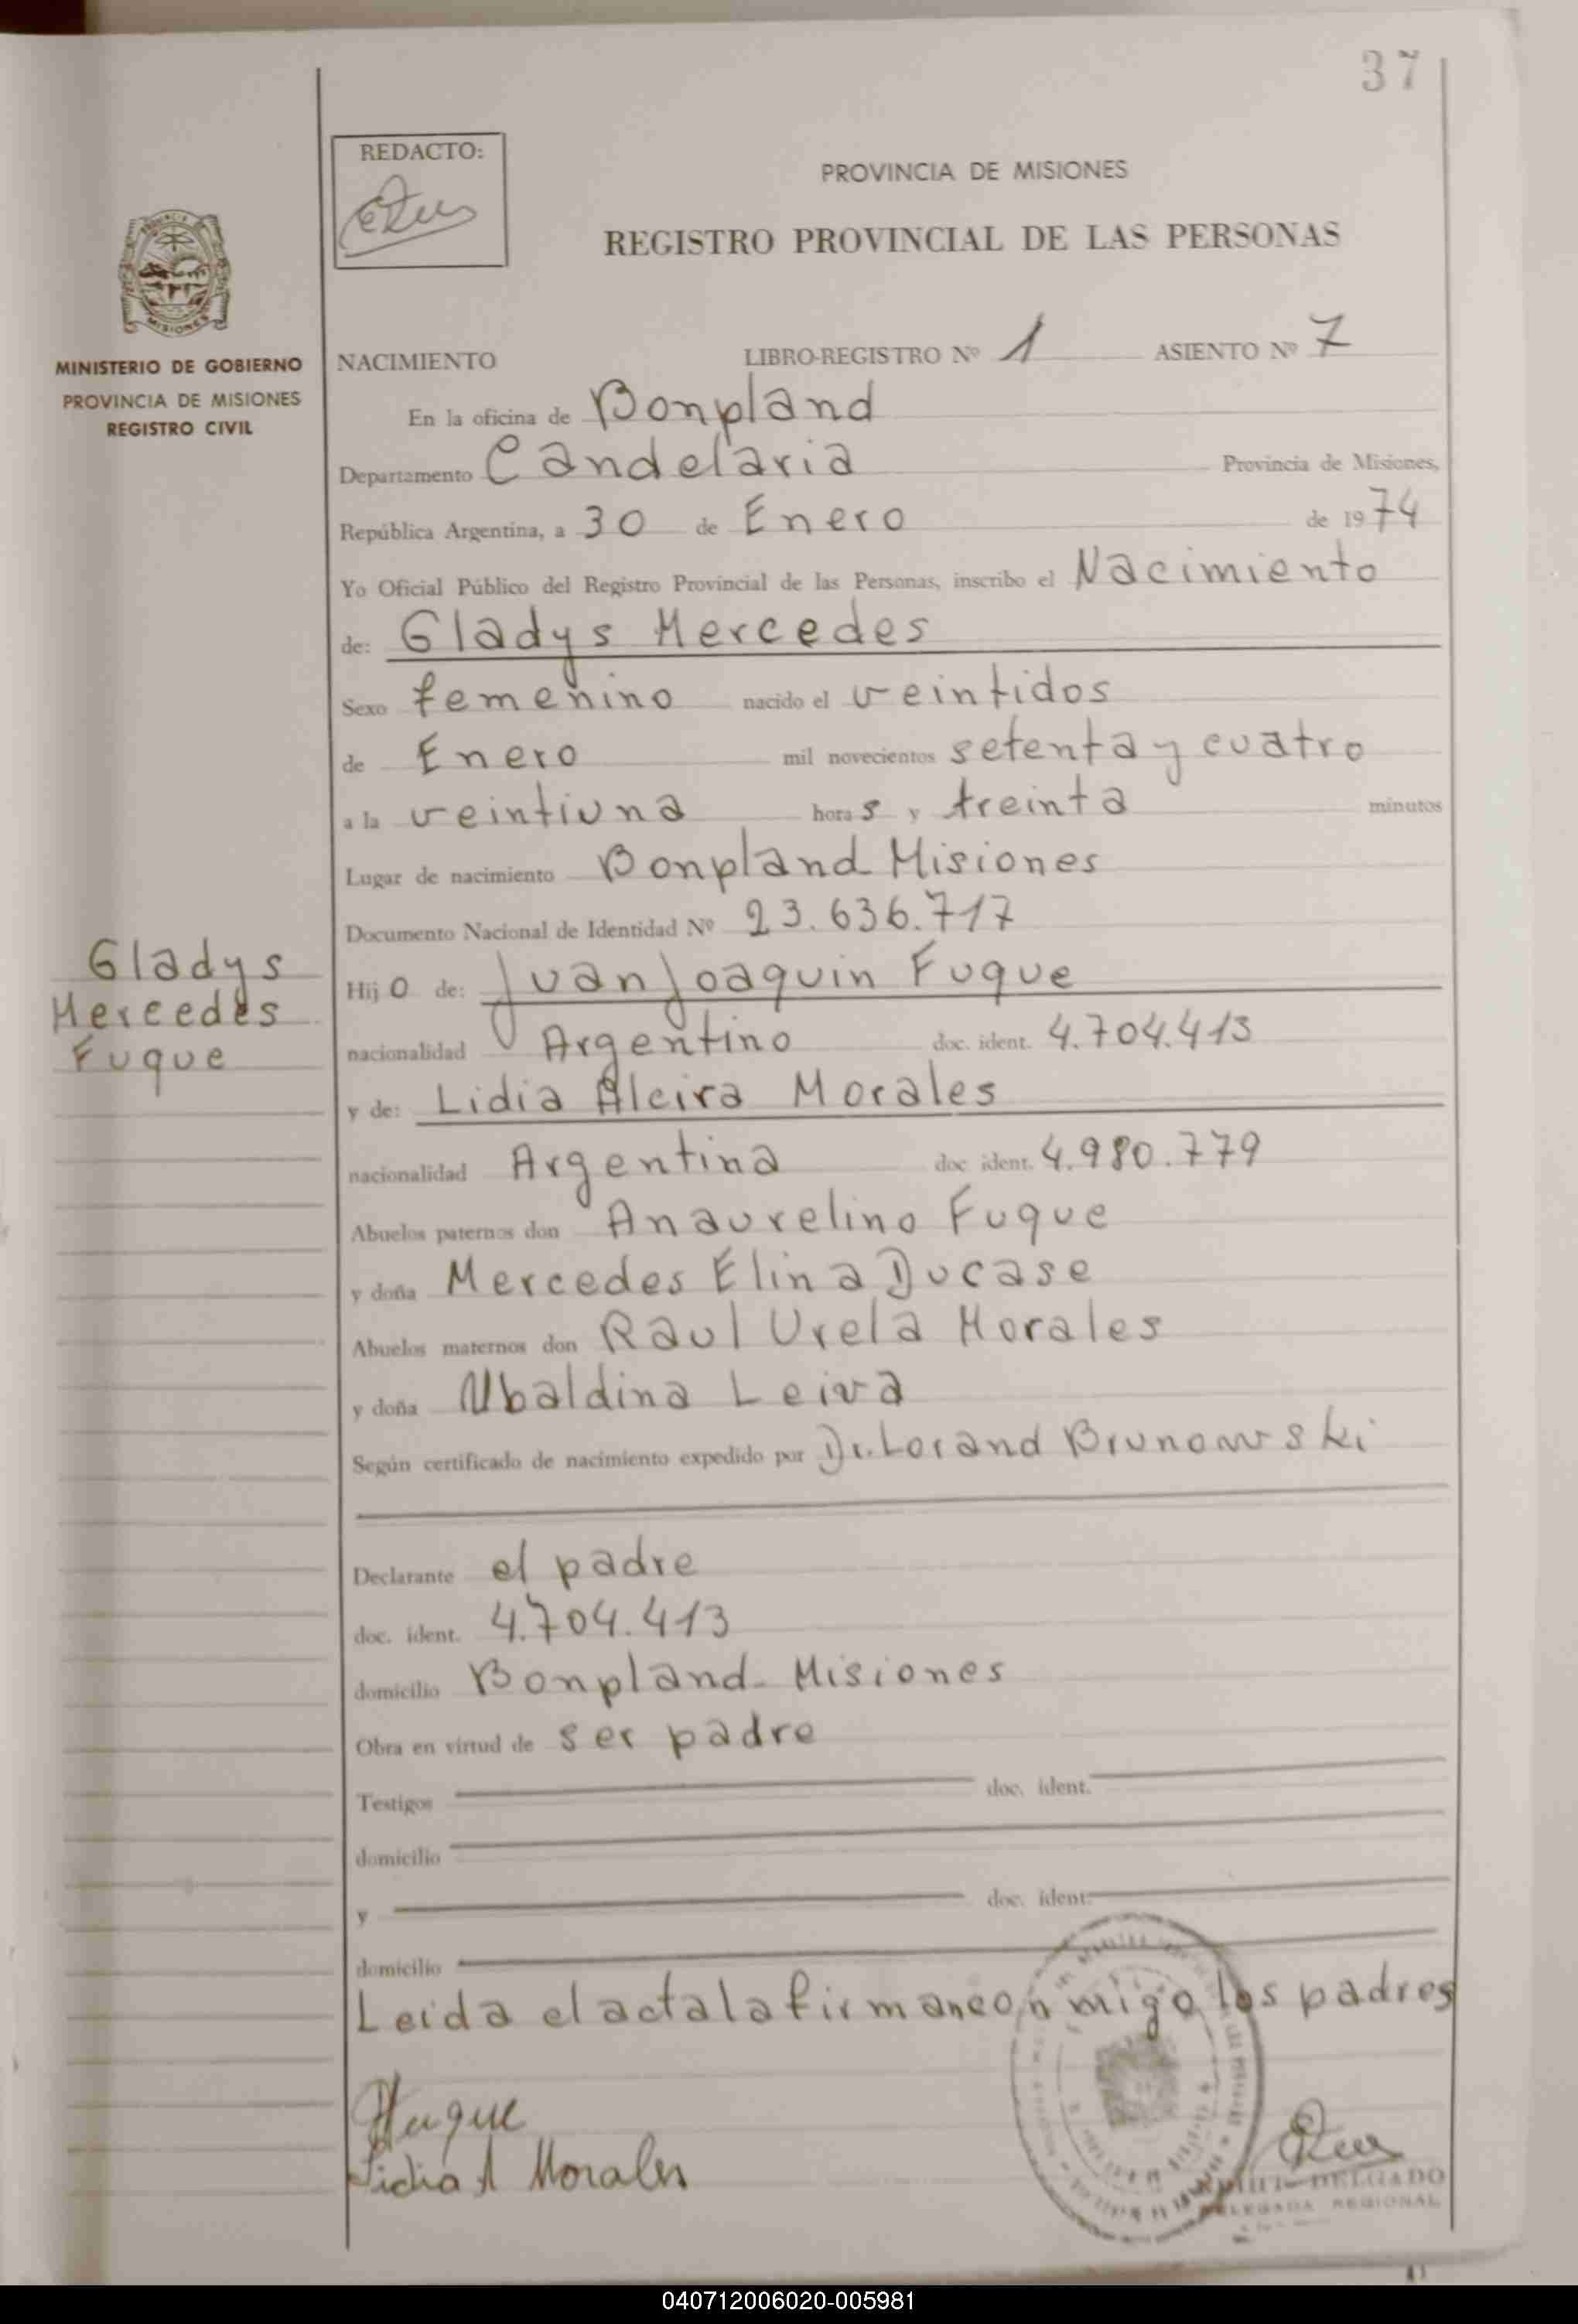 37
REDACTO:
PROVINCIA DE MISIONES
REGISTRO PROVINCIAL DE LAS PERSONAS
MISIONES
MINISTERIO DE GOBIERNO
PROVINCIA DE MISIONES
REGISTRO CIVIL
NACIMIENTO LIBRO-REGISTRO Nº 1 ASIENTO Nº 7
En la oficina de Bonpland
Departamento Candelaria Provincia de Misiones,
República Argentina, a 30 de Enero de 1974
Yo Oficial Público del Registro Provincial de las Personas, inscribo el Nacimiento
de: Gladys Mercedes
Sexo femenino nacido el veintidos
de Enero mil novecientos setenta y cuatro
a la veintiuna horas y treinta minutos
Lugar de nacimiento Bonpland Misiones
Documento Nacional de Identidad Nº 23.636.717
Gladys
Mercedes
Fuque
Hijo de: Juan Joaquin Fuque
nacionalidad Argentino doc. ident. 4.704.413
y de: Lidia Alcira Morales
nacionalidad Argentina doc ident. 4.980.779
Abuelos paternos don Anaurelino Fuque
y doña Mercedes Elina Ducase
Abuelos maternos don Raul Urela Morales
y doña Ubaldina Leiva
Según certificado de nacimiento expedido por Dr. Lorand Brunowski
Declarante el padre
doc. ident. 4.704.413
domicilio Bonpland - Misiones
Obra en virtud de ser padre
Testigos doc. ident.
domicilio
y doc. ident.
domicilio
Leida el acta la firman conmigo los padres
Fuque
Lidia A Morales
DELGADO
DELEGADA REGIONAL
040712006020-005981